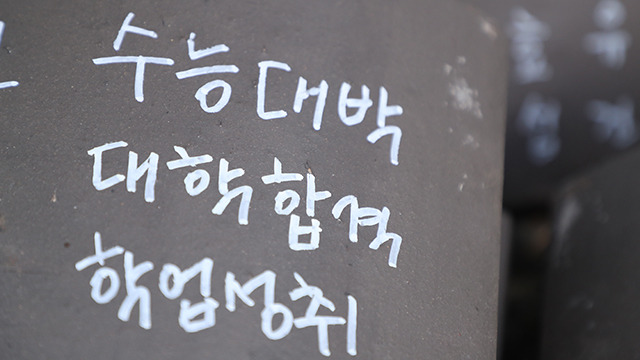 수능대박
대학합격
학업성취